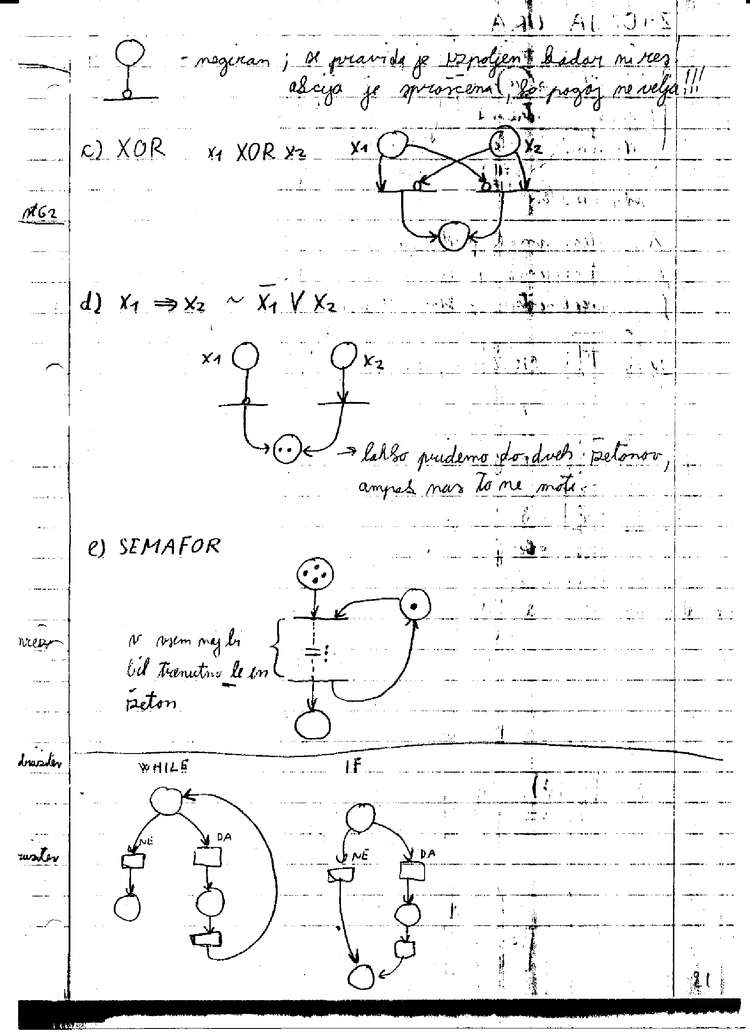 - negiran ; se pravi da je izpolnjen kadar ni res
akcija je sprožena, ko pogoj ne velja!!!
c) XOR x1 XOR x2 x1 x2
d) x1 ⇒ x2 ~ x̄1 V x2
x1 x2
→ lahko pridemo do dveh žetonov,
ampak nas to ne moti.
e) SEMAFOR
v vsem naj bi
bil trenutno le en
žeton
WHILE IF
NE DA NE DA
21